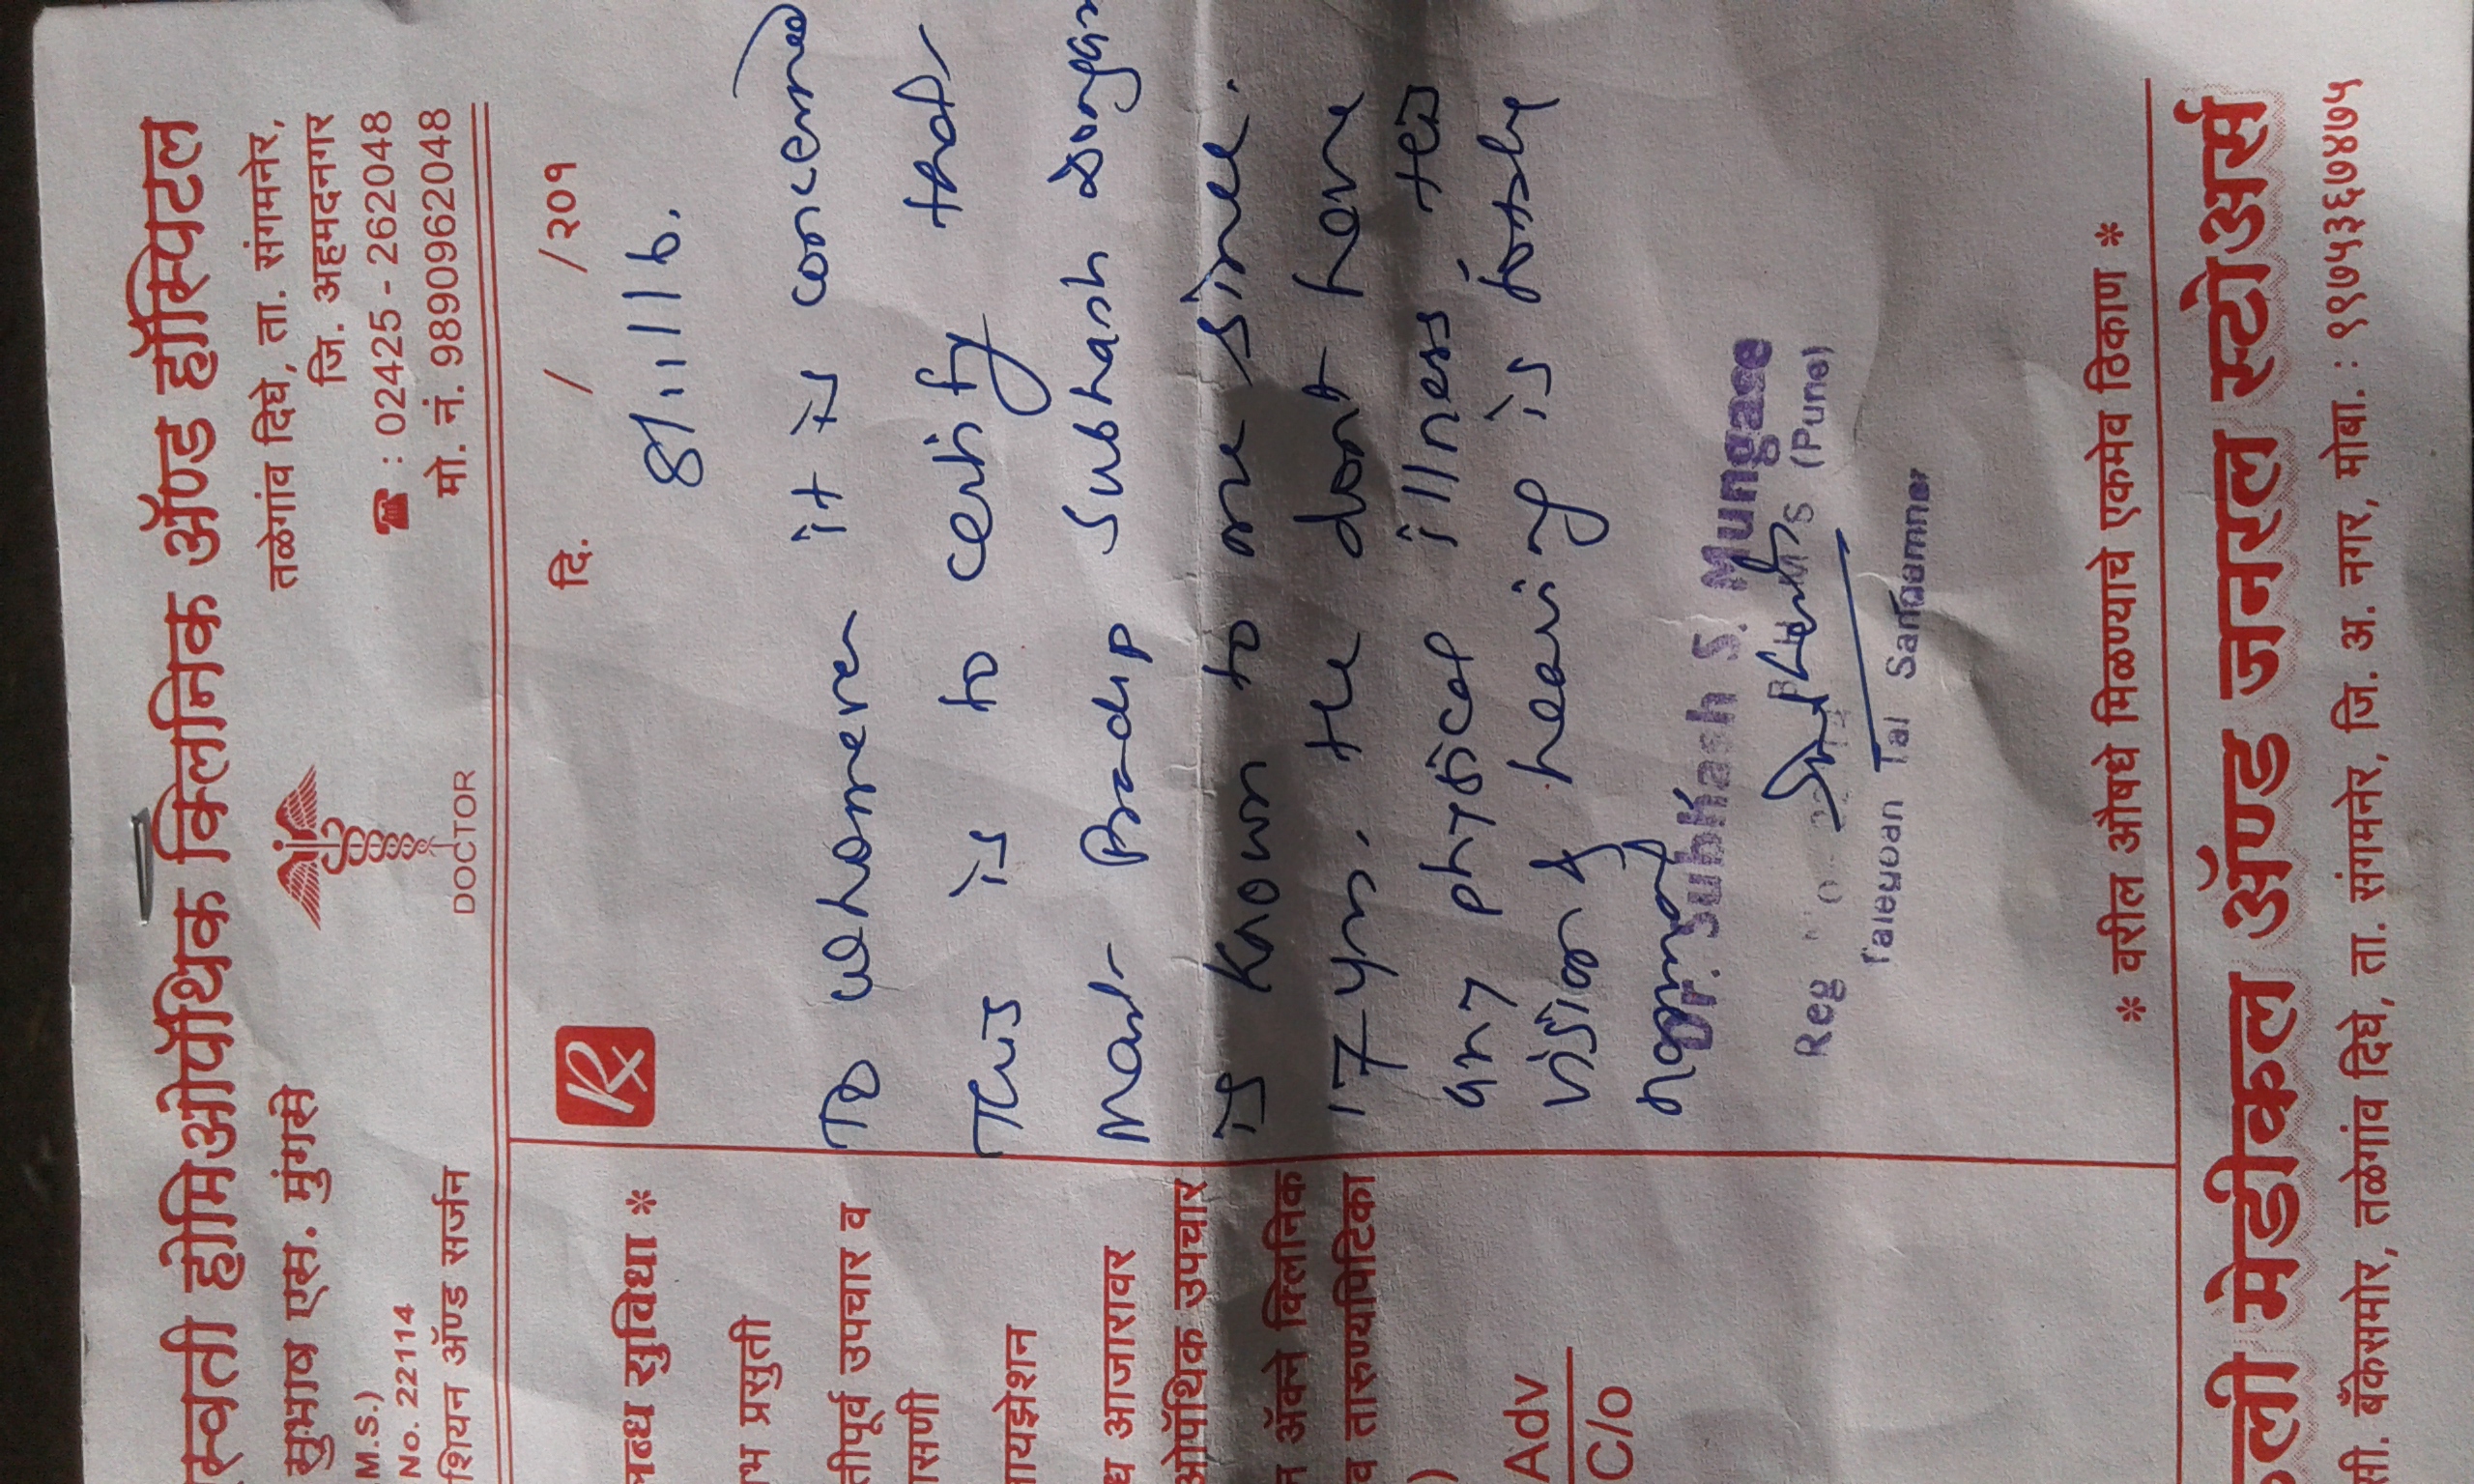 स्वती होमिओपॅथिक क्लिनिक ॲण्ड हॉस्पिटल
सुभाष एस. मुंगसे
M.S.)
No. 22114
शियन ॲण्ड सर्जन
DOCTOR
तळेगांव दिघे, ता. संगमनेर,
जि. अहमदनगर
☎ : 02425 - 262048
मो. नं. 9890962048
लब्ध सुविधा *
भ प्रसुती
तीपूर्व उपचार व
ासणी
ायझेशन
ध आजारावर
ओपॅथिक उपचार
न ॲक्ने क्लिनिक
व तारुण्यपिटिका
)
Adv
C/o
Rx
दि. / /२०१
8/11/16.
To whomever it is concerned
This is to certify that
Mast- Pradip Subhash
is known to me since.
17 yrs. He dont have
any physical illness
vision & hearing is
normal
Dr. Subhash S. Mungase
Reg
S (Pune)
Talegoan Tal Sangamner
* वरील औषधे मिळण्याचे एकमेव ठिकाण *
ली मेडीकल ॲण्ड जनरल स्टोअर्स
सी. बँकेसमोर, तळेगांव दिघे, ता. संगमनेर, जि. अ. नगर, मोबा. : ९९७५३६७४७५